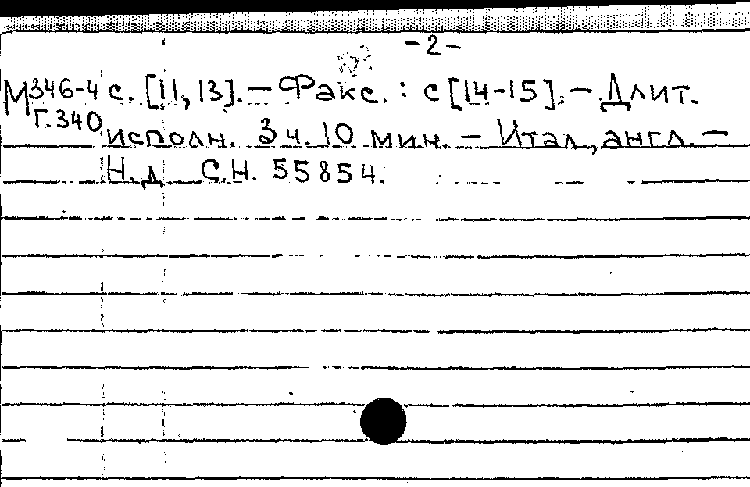 -2-
М346-4 с. [11, 13]. – Факс. : с [14-15]. – Длит.
Г.340 исполн. 3 ч. 10 мин. – Итал., англ. –
Н.д. С.Н. 55854.